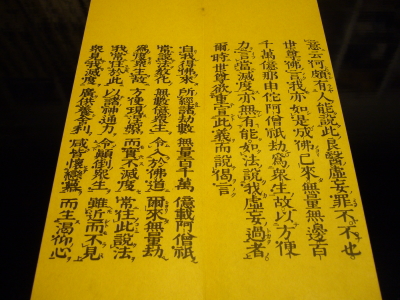 意云何頗有人能說此良醫虛妄罪不不也
世尊佛言我亦如是成佛已來無量無邊百
千萬億那由佗阿僧祇劫為衆生故以方便
力言當滅度亦無有能如法說我虛妄過者
爾時世尊欲重宣此義而說偈言
自我得佛來 所經諸劫數 無量百千萬 億載阿僧祇
常說法教化 無數億衆生 令入於佛道 爾來無量劫
為度衆生故 方便現涅槃 而實不滅度 常住此說法
我常住於此 以諸神通力 令顛倒衆生 雖近而不見
衆見我滅度 廣供養舍利 咸皆懷戀慕 而生渴仰心